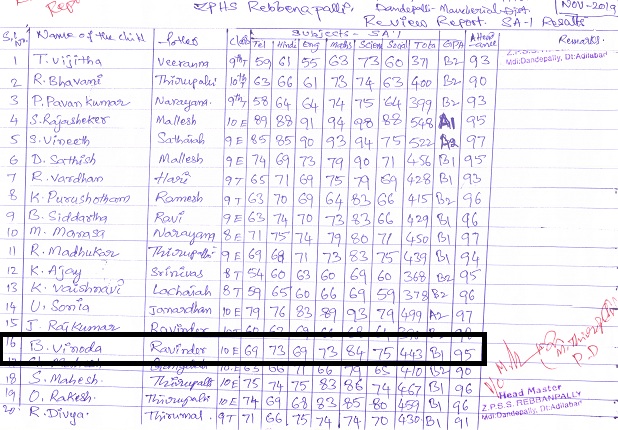 ZPHS Rebbenapally, Dandepally - Mancherial - Dist.
NOV-2019
Review Report. SA-1 Results
Subjects - SA-1
S.No Name of the child Father Class Tel Hindi Eng maths Scien Social Total GPA Remarks.
Z.P.S.S. REBBANPALLY
Mdl:Dandepally, Dt:Adilabad
1 T. Vijitha Veeranna 9th T 59 61 55 63 73 60 371 B2 93
2 R. Bhavani Thirupathi 10th T 63 66 61 73 74 63 400 B2 90
3 P. Pavan kumar Narayana. 9th T 58 64 64 74 75 64 399 B2 93
4 S. Rajasheker Mallesh 10 E 89 88 91 94 98 88 548 A1 95
5 S. Vineeth Sathaiah 9 E 85 85 90 93 94 75 522 A2 97
6 D. Sathish Mallesh 9 E 74 69 73 79 90 71 456 B1 95
7 R. Vardhan Hari 9 T 65 71 69 75 79 69 428 B1 93
8 K. Purushotham Ramesh 9 T 63 70 69 64 83 66 415 B2 96
9 B. Siddartha Ravi 9 E 63 74 70 73 83 66 429 B1 96
10 M. Manasa Narayana 8 E 71 75 74 79 80 71 450 B1 97
11 R. Madhukar Thirupathi 9 E 69 68 71 73 83 75 439 B1 94
12 K. Ajay Srinivas 8 T 54 60 63 60 69 60 368 B2 95
13 K. Vaishnavi Lachaiah 8 T 59 65 60 66 69 59 378 B2 96
14 U. Sonia Janardhan 10 E 79 76 83 89 93 79 499 A2 97
15 J. Raj Kumar Ravinder
16 B. Vinoda Ravinder 10 E 69 73 69 73 84 75 443 B1 95
10 E 63 66 71 66 79 65 410 B2 90
18 S. Mahesh. Thirupathi 10 E 75 74 75 83 86 74 467 B1 96
19 O. Rakesh. Thirupathi 10 E 74 69 68 83 85 80 459 B1 96
20 R. Divya. Thirumal. 9 T 71 66 75 74 74 70 430 B1 91
P.D
Head Master
Z.P.S.S. REBBANPALLY
Mdl:Dandepally, Dt:Adilabad